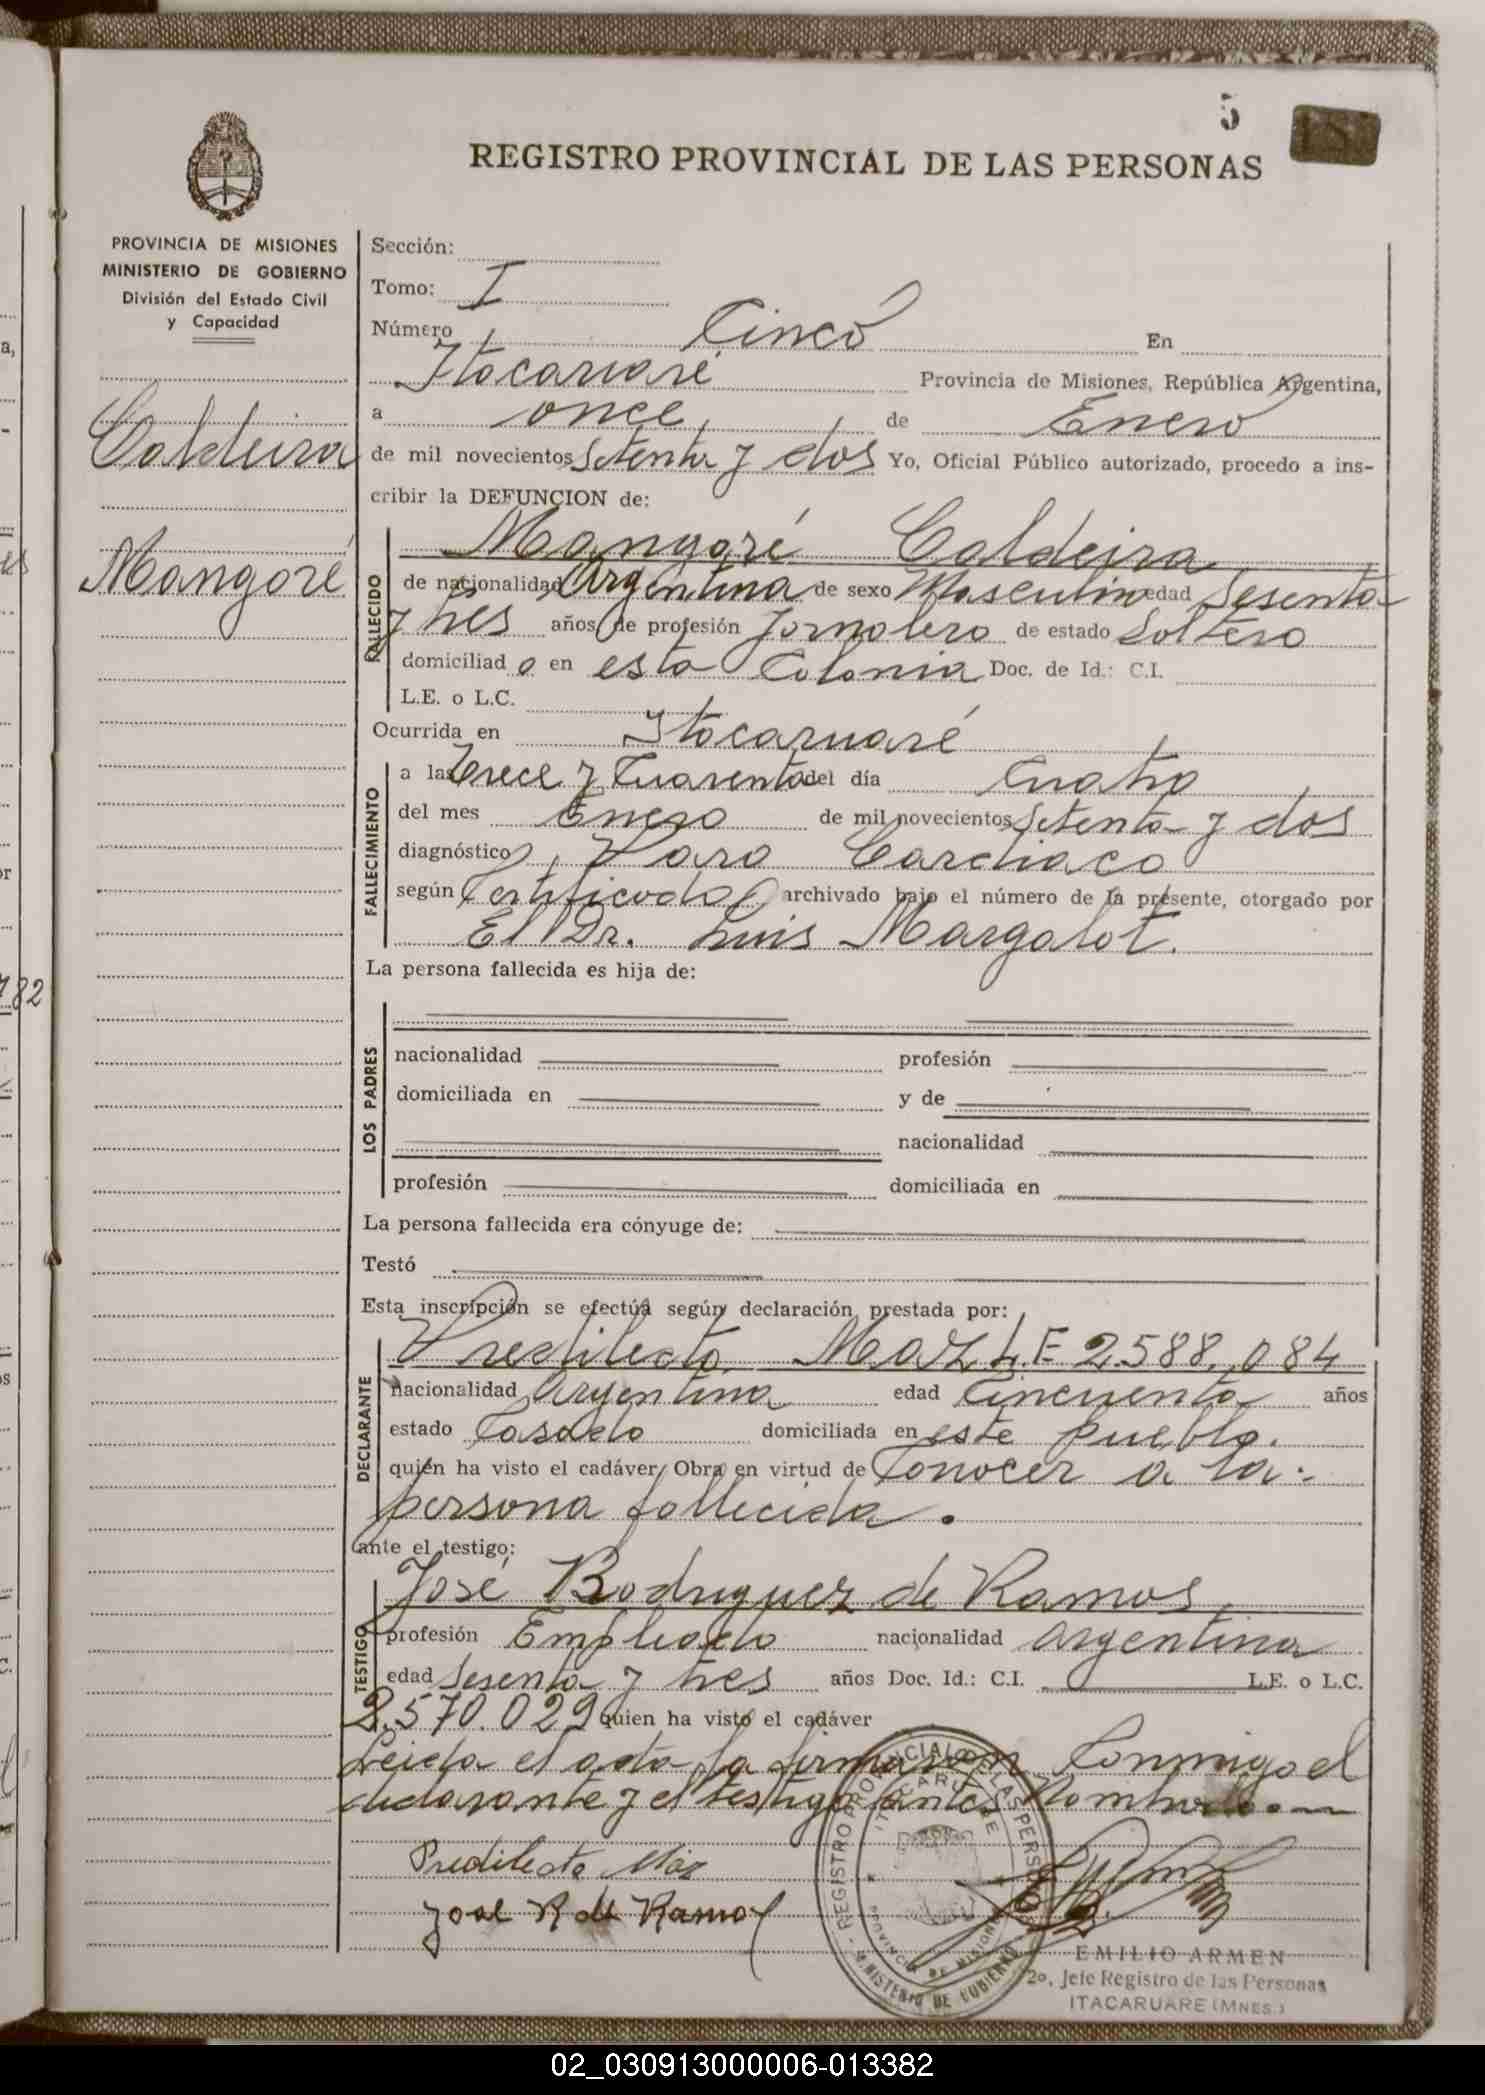 5
REGISTRO PROVINCIAL DE LAS PERSONAS
PROVINCIA DE MISIONES
MINISTERIO DE GOBIERNO
División del Estado Civil
y Capacidad
Caldeira
Mangoré
Sección:
Tomo: I
Número Cinco En
Itacaruaré Provincia de Misiones, República Argentina,
a once de Enero
de mil novecientos Setenta y dos Yo, Oficial Público autorizado, procedo a ins-
cribir la DEFUNCION de:
FALLECIDO
Mangoré Caldeira
de nacionalidad Argentina de sexo Masculino edad Sesenta
y tres años de profesión Jornalero de estado Soltero
domiciliado en esta Colonia Doc. de Id.: C.I.
L.E. o L.C.
Ocurrida en Itacaruaré
FALLECIMIENTO
a las Trece y Cuarenta del día Cuatro
del mes Enero de mil novecientos Setenta y dos
diagnóstico, Paro Cardiaco
según Certificado archivado bajo el número de la présente, otorgado por
El Dr. Luis Margalot.
La persona fallecida es hija de:
LOS PADRES
nacionalidad profesión
domiciliada en y de
nacionalidad
profesión domiciliada en
La persona fallecida era cónyuge de:
Testó
Esta inscripción se efectúa según declaración prestada por:
DECLARANTE
Predilecto Maz L.E 2588.084
nacionalidad Argentina edad Cincuenta años
estado Casado domiciliada en este pueblo.
quién ha visto el cadáver Obra en virtud de Conocer a la
persona fallecida.
ante el testigo:
TESTIGO
José Rodriguez de Ramos
profesión Empleado nacionalidad Argentina
edad Sesenta y tres años Doc. Id.: C.I. L.E. o L.C.
2.570.029 quien ha visto el cadáver
Leida el acta la firmaron Conmigo el
declarante y el testigo antes Nombrado
Predilecto Maz
José R de Ramos
REGISTRO PROVINCIAL DE LAS PERSONAS
ITACARUARE
PROVINCIA DE MISIONES
MINISTERIO DE GOBIERNO
EMILIO ARMEN
2o. Jefe Registro de las Personas
ITACARUARE (MNES.)
782
02_030913000006-013382